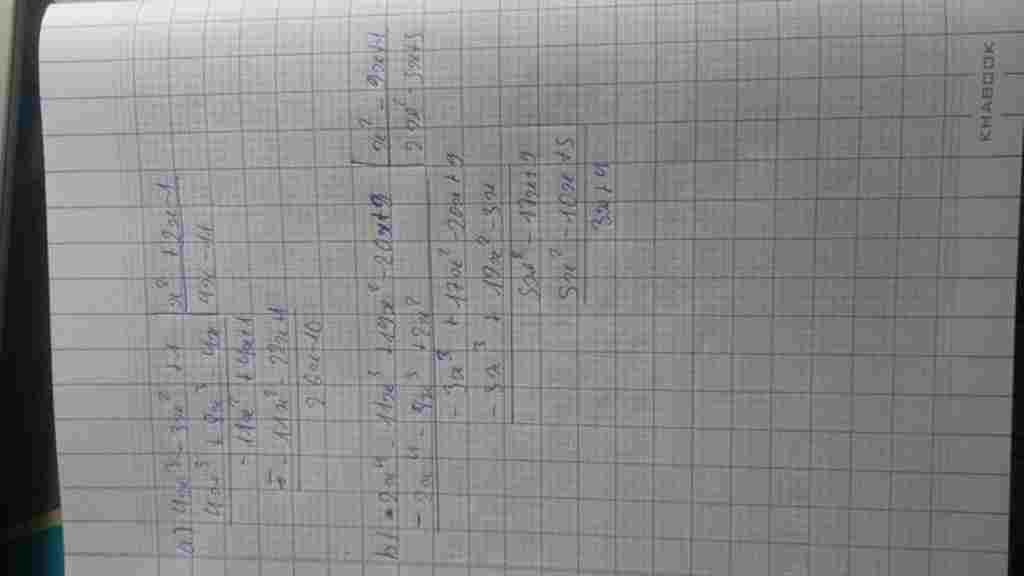 a) 4x³ - 3x² + 1 | x² + 2x - 1
4x³ + 8x² - 4x | 4x - 11
- 11x² + 4x + 1
- 11x² - 22x + 11
26x - 10
b) 2x⁴ - 11x³ + 19x² - 20x + 9 | x² - 4x + 1
- 2x⁴ - 8x³ + 2x² | 2x² - 3x + 5
- 3x³ + 17x² - 20x + 9
- 3x³ + 12x² - 3x
5x² - 17x + 9
5x² - 10x + 5
3x + 4
KHABOOK